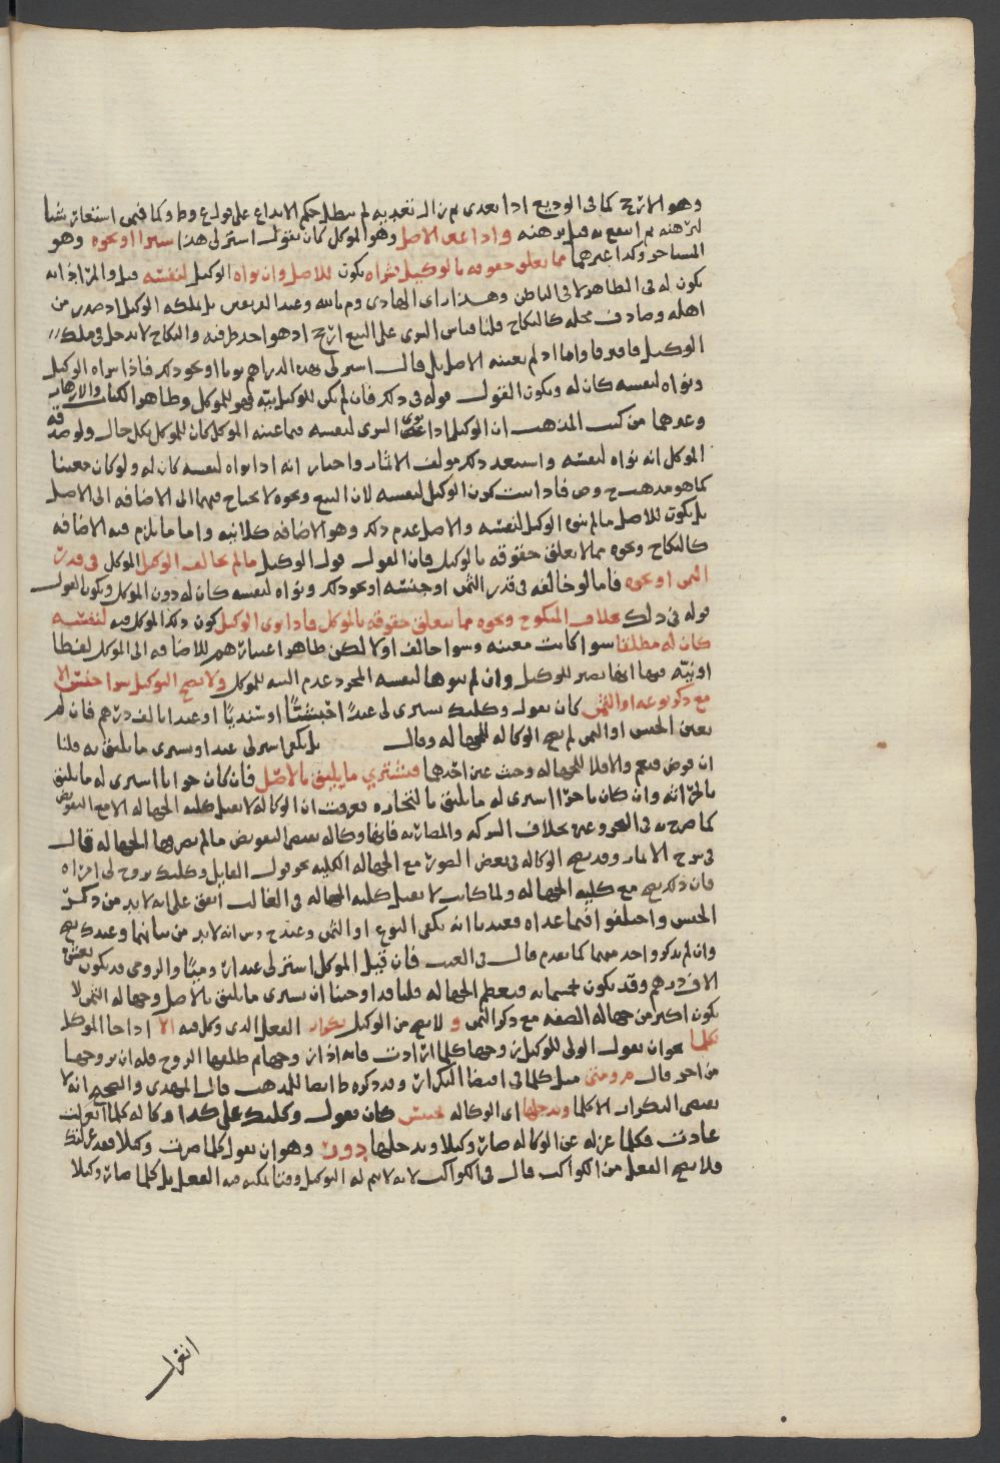 وهو الارجح كما في الوديع اذا تعدى ثم زال تعديه لم يبطل حكم الايداع على قول ع وط وكما فيمن استعار شيا
ليرهنه ثم انتفع به قبل يرهنه واذا عين الاصل وهو الموكل كان يقول اشتر لي هذا سرا او نحوه وهو
وكذا غيرهما مما يعلق حقوقه بالوكيل فشراه يكون للاصل وان نواه الوكيل لنفسه قيل والمراد انه
يكون له في الظاهر لا في الباطن وهذا راي الهادي وم بالله وعند الفريقين بل يملكه الوكيل اذ صدر من
اهله وصادف محله كالنكاح قلنا قياس الشرى على البيع ارجح اذ هو احد طرفيه والنكاح لا يدخل في ملك
الوكيل فافترقا واما اذ لم يعينه الاصل بل قال اشتر لي بهذه الدراهم ثوبا او نحو ذلك فاذا شراه الوكيل
ونواه لنفسه كان له ويكون القول قوله في ذلك فان لم يكن للوكيل نيه فهو للموكل وظاهر الكتاب والازهار
وغيرهما من كتب المذهب ان الوكيل اذا نوى الشرى لنفسه فيما عينه الموكل كان للموكل بكل حال ولو صدقه
الموكل انه نواه لنفسه واستبعد ذلك مولف الاثمار واختار انه اذا نواه لنفسه كان له ولو كان معينا
كما هو مذهب ح وص فاذا ثبت كون الوكيل لنفسه لان البيع ونحوه لا يحتاج فيهما الى الاضافه الى الاصل
بل يكون للاصل ما لم ينوه الوكيل لنفسه والاصل عدم ذلك وهو الاضافه كلا نيه واما ما يلزم فيه الاضافه
كالنكاح ونحوه مما لا يعلق حقوقه بالوكيل فان القول قول الوكيل ما لم يخالف الوكيل الموكل في قدر
الثمن او نحوه فاما لو خالفه في قدر الثمن او جنسه او نحو ذلك ونواه لنفسه كان له دون الموكل ويكون القول
قوله في ذلك بخلاف المنكوح ونحوه مما يتعلق حقوقه بالموكل فاذا نوى الوكيل كون ذلك الموكل فيه لنفسه
كان له مطلقا سوا كانت معينه وسوا خالف اولا لكن ظاهر اعتبارهم للاضافه الى الموكل لفظا
او نيه فيها انها تصير للوكيل وان لم ينوها لنفسه لمجرد عدم النيه للموكل ولا يصح التوكيل بشرا جنس الا
مع ذكر نوعه او الثمن كان يقول وكلتك تشتري لي عبدًا حبشيًا او سنديًا او عبدا بالف درهم فان لم
يعين الجنس او الثمن لم يصح الوكاله للجهاله وقال بل يكفي اشتر لي عبدا ويشترى ما يليق به قلنا
ان فوض فنعم والا فلا للجهاله وحيث عين احدها فيشتري ما يليق بالاصل فان كان حوانا اشترى له ما يليق
بالخزانه وان كان تاجرا اشترى له ما يليق بالتجاره فعرفت ان الوكاله لا تقبل كليه الجهاله الا مع التفويض
كما صرح به في البحر وغيره بخلاف الشركه والمضاربه فانها وكاله تتضمن التفويض ما لم تصر بها الجهاله قال
في شرح الاثمار وقد يصح الوكاله في بعض الصور مع الجهاله الكليه نحو قول القايل وكلتك تزوج لي امراه
فان ذلك يصح مع كليه الجهاله ولما كانت لا تقبل كليه الجهاله في الغالب اتفق على انه لا بد من ذكر
الجنس واختلفوا فيما عداه فعندنا انه يكفي النوع او الثمن وعند ح وش انه لا بد من بيانهما وعند ك يصح
وان لم يذكر واحد منهما كما تقدم قال في الغيث فان قيل الموكل اشتر لي عبدا روميًا والرومي قد يكون بعشره
الاف درهم وقد يكون بخمسمايه فيعظم الجهاله قلنا قد اوجبنا ان يشترى ما يليق بالاصل وجهاله الثمن لا
يكون اكثر من جهاله الصفه مع ذكر الثمن و لا يصح من الوكيل تكرار الفعل الذي وكل فيه الا اذا جا الموكل
بكلما نحو ان يقول الولي للوكيل زوجها كلما ارادت فانه اذا زوجها ثم طلقها الزوج فله ان يزوجها
من اخر قال م ومتى مثل كلما في اقتضا التكرار وقد ذكره ط ايضا للمذهب قال المهدي والصحيح انه لا
يقتضي التكرار الا كلما ويدخلها اي الوكاله حبس كان يقول وكلتك على كذا وكاله كلما انعزلت
عادت فكلما عزله عن الوكاله صار وكيلا ويدخلها دور وهو ان يقول كلما صرت وكيلا فقد عزلتك
فلا يصح الفعل من الكواكب قال في الكواكب لانه لا يتم له التوكيل وقتا يمكنه فيه الفعل بل كلما صار وكيلا
انعزل